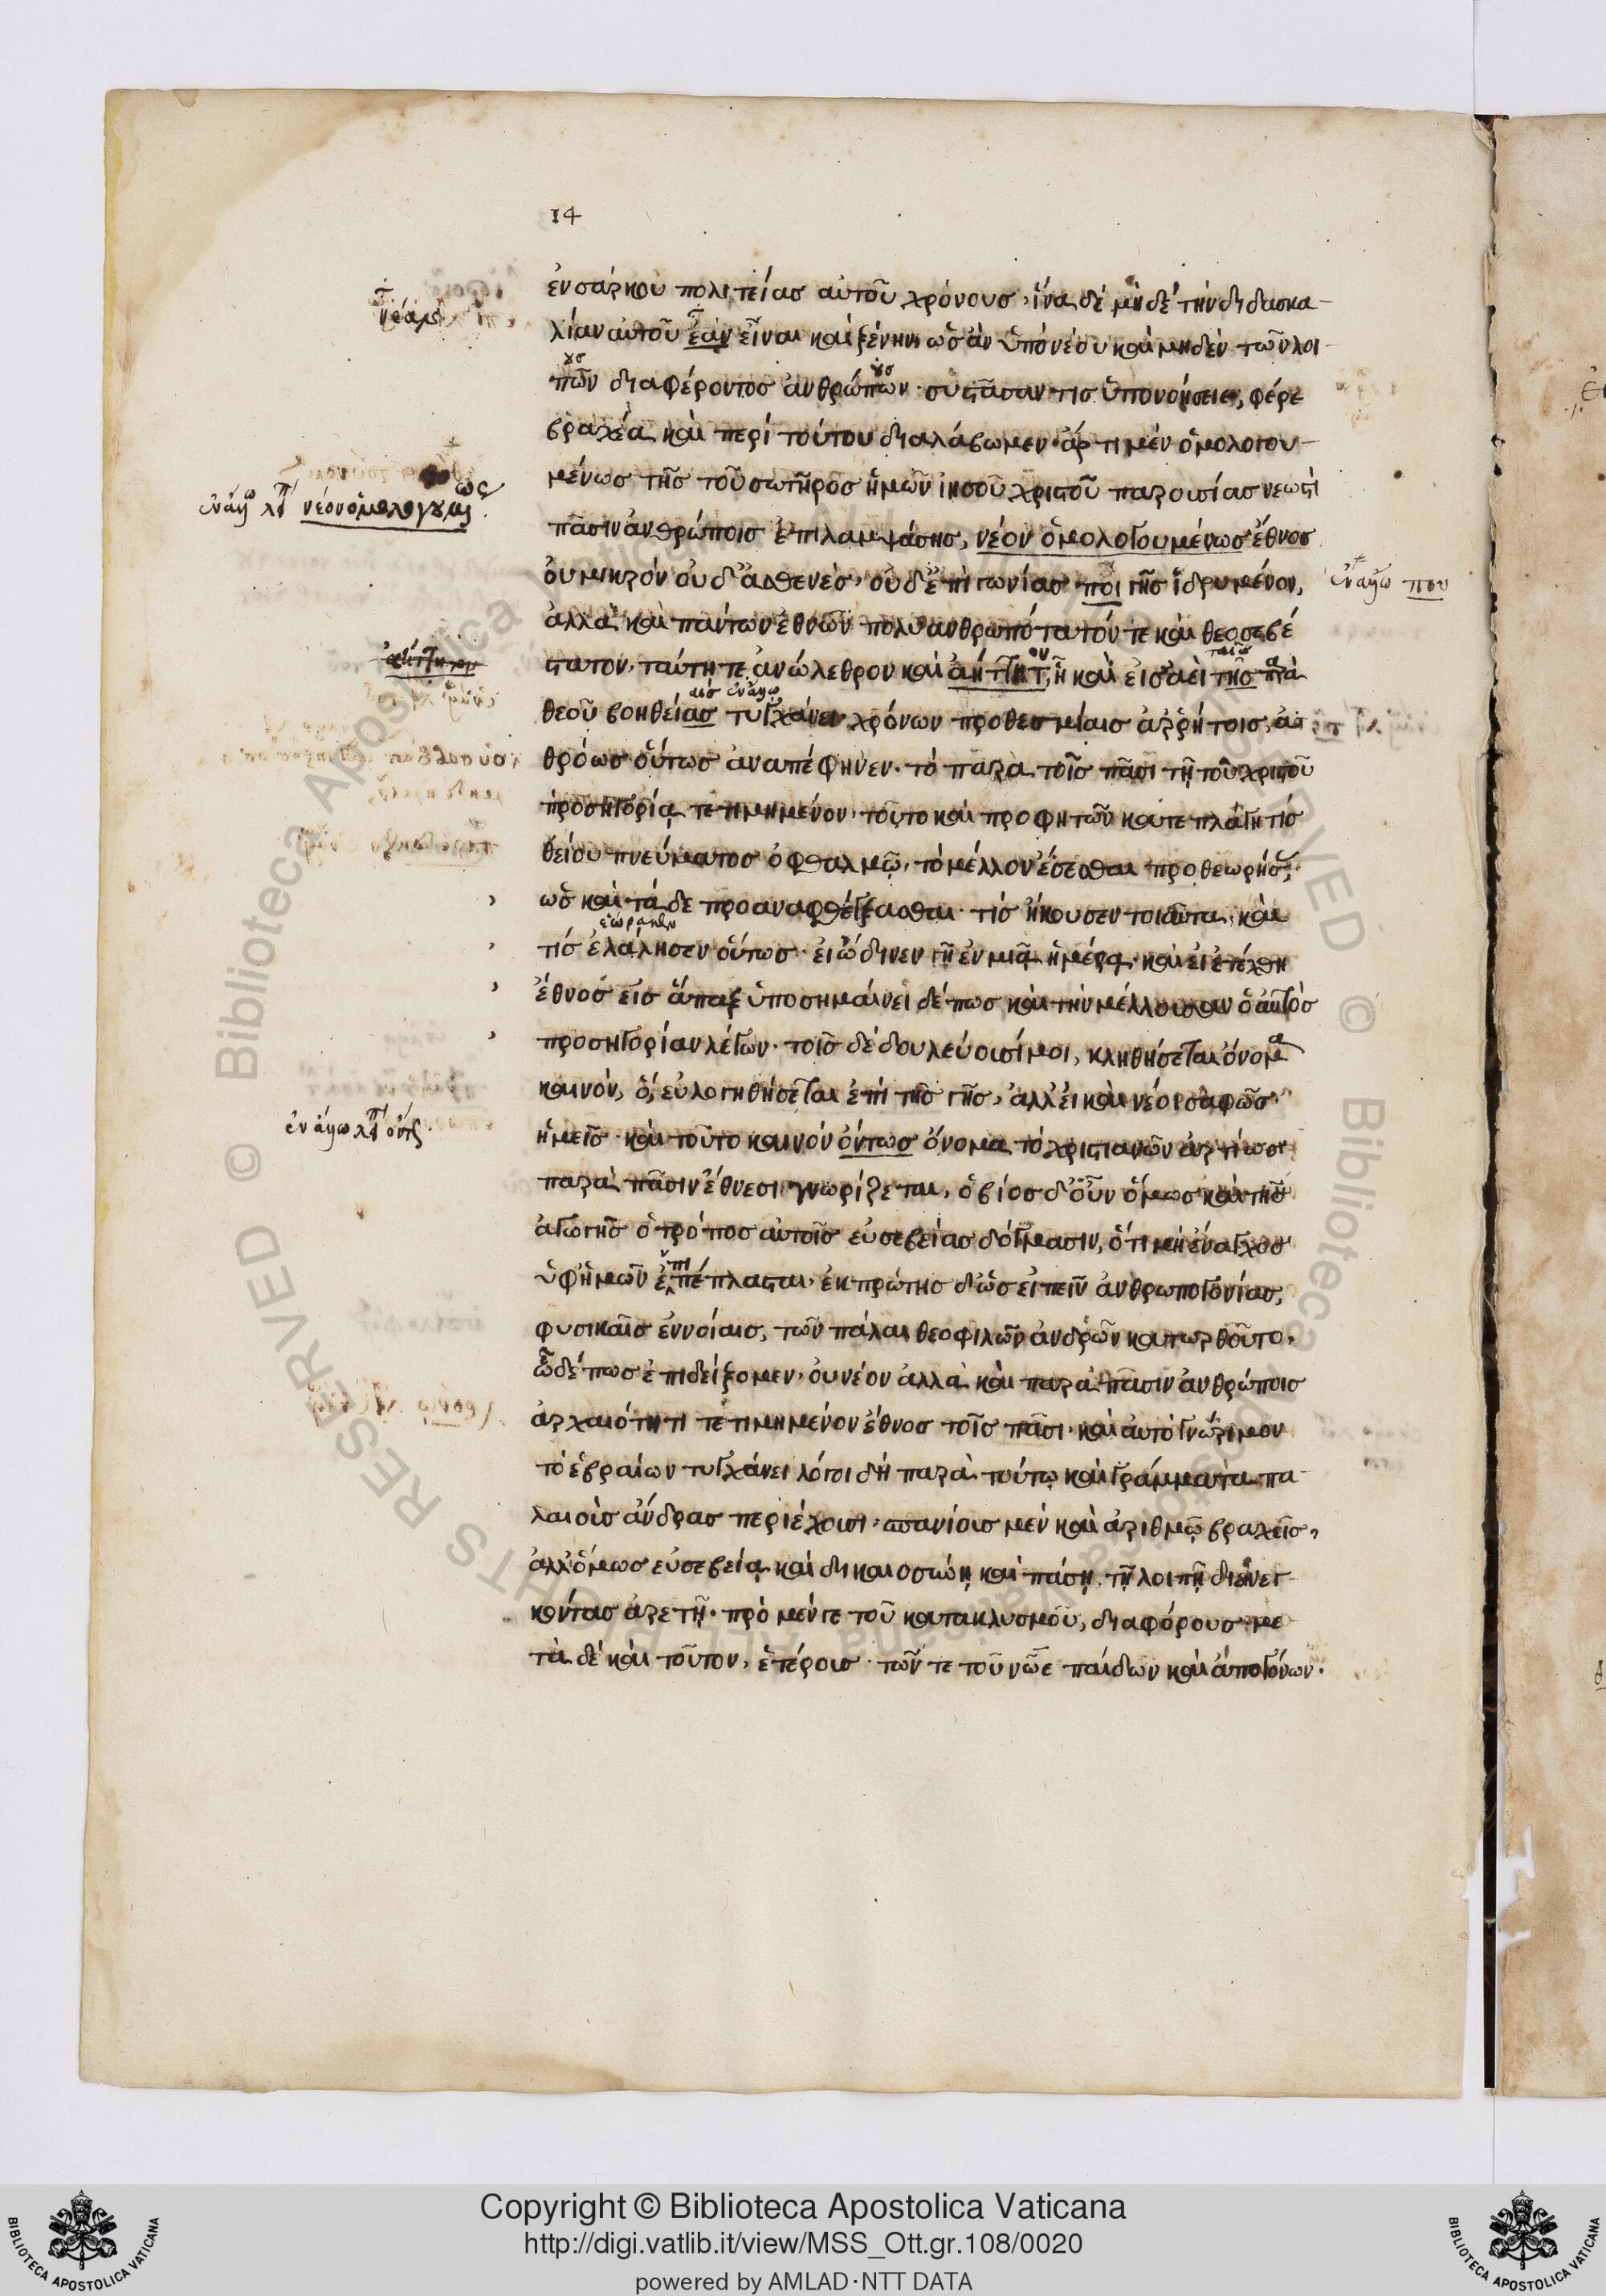 14
ἐνσάρκου πολιτείας αὐτοῦ χρόνους, ἵνα δὲ μὴ δὲ τὴν διδασκα-
λίαν αὐτοῦ ἐὰν εἶναι καὶ ξένην, ὡς ἂν ὑπὸ νέου καὶ μηδὲν τῶν λοι-
πῶν διαφέροντος ἀνθρώπων συστᾶσαν τις ὑπονοήσειε, φέρε
βραχέα καὶ περὶ τούτου διαλάβωμεν. ἄρτι μὲν ὁμολογου-
μένως τῆς τοῦ σωτῆρος ἡμῶν ἰησοῦ χριστοῦ παρουσίας νεωστὶ
πᾶσιν ἀνθρώποις ἐπιλαμψάσης, νέον ὁμολογουμένως ἔθνος
οὐ μικρὸν οὐδ' ἀσθενὲς, οὐδ' ἐπὶ γωνίας ποι γῆς ἱδρυμένον,
ἀλλὰ καὶ πάντων ἐθνῶν πολυανθρωπότατόν τε καὶ θεοσεβέ
στατον, ταύτη τε ἀνώλεθρον καὶ ἀήττητ, ἧ καὶ εἰσαεὶ τῆς παρὰ
θεοῦ βοηθείας τυγχάνει χρόνων προθεσμίαις ἀρρήτοις, ἀ
θρόως οὕτως ἀναπέφηνεν. τὸ παρὰ τοῖς πᾶσι τῆ τοῦ χριστοῦ
προσηγορίᾳ τετιμημένον. τοῦτο καὶ προφητῶν κατεπλάγη τίς
θείου πνεύματος ὀφθαλμῷ, τὸ μέλλον ἔσεσθαι προθεωρήσας,
ὡς καὶ τάδε προαναφθέγξασθαι. τίς ἤκουσεν τοιαῦτα, καὶ
τίς ἐλάλησεν οὕτως. εἰ ὤδινεν γῆ ἐν μιᾷ ἡμέρᾳ. καὶ εἰ ἐτέχθη
ἔθνος εἰς ἅπαξ ὑποσημαίνει δέ πως καὶ τὴν μέλλουσαν ὁ αὐτὸς
προσηγορίαν λέγων. τοῖς δὲ δουλεύουσί μοι, κληθήσεται ὄνομα
καινόν, ὅ, εὐλογηθήσεται ἐπὶ τῆς γῆς, ἀλλ' εἰ καὶ νέοι σαφῶς
ἡμεῖς καὶ τοῦτο καινὸν ὄντως ὄνομα τὸ χριστιανῶν ἀρτίως
παρὰ πᾶσιν ἔθνεσι γνωρίζεται, ὁ βίος δ' οὖν ὅμως καὶ τῆς
ἀγωγῆς ὁ τρόπος αὐτοῖς εὐσεβείας δόγμασιν, ὅτι μὴ ἔναγχος
ὑφ' ἡμῶν ἐπέπλασται. ἐκ πρώτης δ' ὡς εἰπεῖν ἀνθρωπογονίας,
φυσικαῖς ἐννοίαις, τῶν πάλαι θεοφιλῶν ἀνδρῶν κατωρθοῦτο,
ὧδέ πως ἐπιδείξομεν. οὐ νέον ἀλλὰ καὶ παρὰ πᾶσιν ἀνθρώποις
ἀρχαιότητι τετιμημένον ἔθνος τοῖς πᾶσι. καὶ αὐτὸ γνώριμον
τὸ ἑβραίων τυγχάνει λόγοι δὴ παρὰ τούτῳ καὶ γράμματα πα-
λαιοὺς ἄνδρας περιέχουσι. σπανίους μὲν καὶ ἀριθμῷ βραχεῖς,
ἀλλ' ὅμως εὐσεβείᾳ καὶ δικαιοσύνῃ καὶ πάσῃ τῇ λοιπῇ διενεγ-
κόντας ἀρετῇ. πρὸ μέν γε τοῦ κατακλυσμοῦ, διαφόρους με
τὰ δὲ καὶ τοῦτον, ἑτέρους τῶν τε τοῦ νῶε παίδων καὶ ἀπογόνων.
Copyright © Biblioteca Apostolica Vaticana
http://digi.vatlib.it/view/MSS_Ott.gr.108/0020
powered by AMLAD·NTT DATA